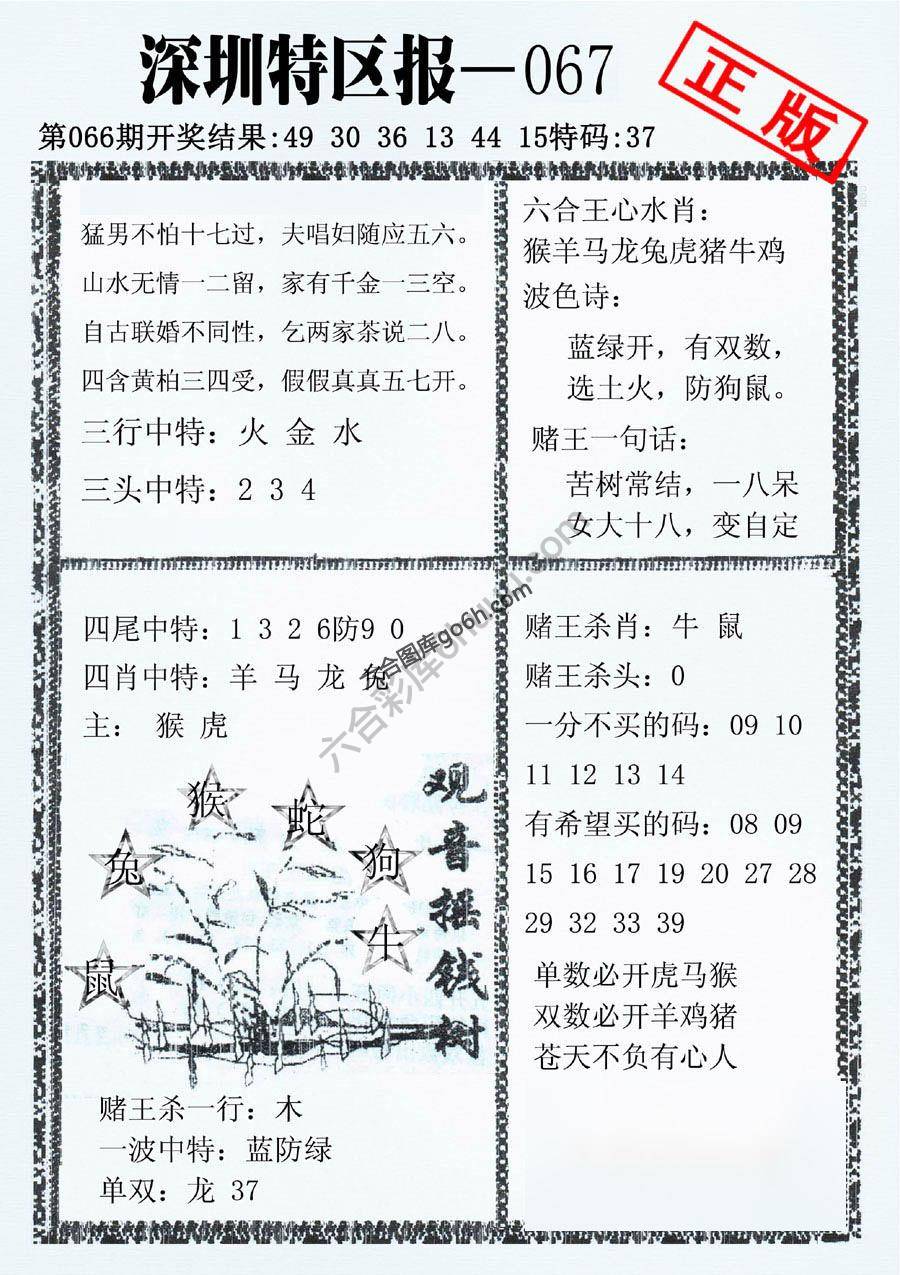 深圳特区报—067
正版
第066期开奖结果:49 30 36 13 44 15特码:37
猛男不怕十七过，夫唱妇随应五六。
山水无情一二留，家有千金一三空。
自古联婚不同性，乞两家茶说二八。
四含黄柏三四受，假假真真五七开。
三行中特：火 金 水
三头中特：2 3 4
六合王心水肖：
猴羊马龙兔虎猪牛鸡
波色诗：
蓝绿开，有双数，
选土火，防狗鼠。
赌王一句话：
苦树常结，一八呆
女大十八，变自定
四尾中特：1 3 2 6防9 0
四肖中特：羊 马 龙 兔
主： 猴 虎
鼠
兔
猴
蛇
狗
牛
观音摇钱树
赌王杀一行：木
一波中特：蓝防绿
单双：龙 37
赌王杀肖：牛 鼠
赌王杀头：0
一分不买的码：09 10
11 12 13 14
有希望买的码：08 09
15 16 17 19 20 27 28
29 32 33 39
单数必开虎马猴
双数必开羊鸡猪
苍天不负有心人
六合图库go6h.com